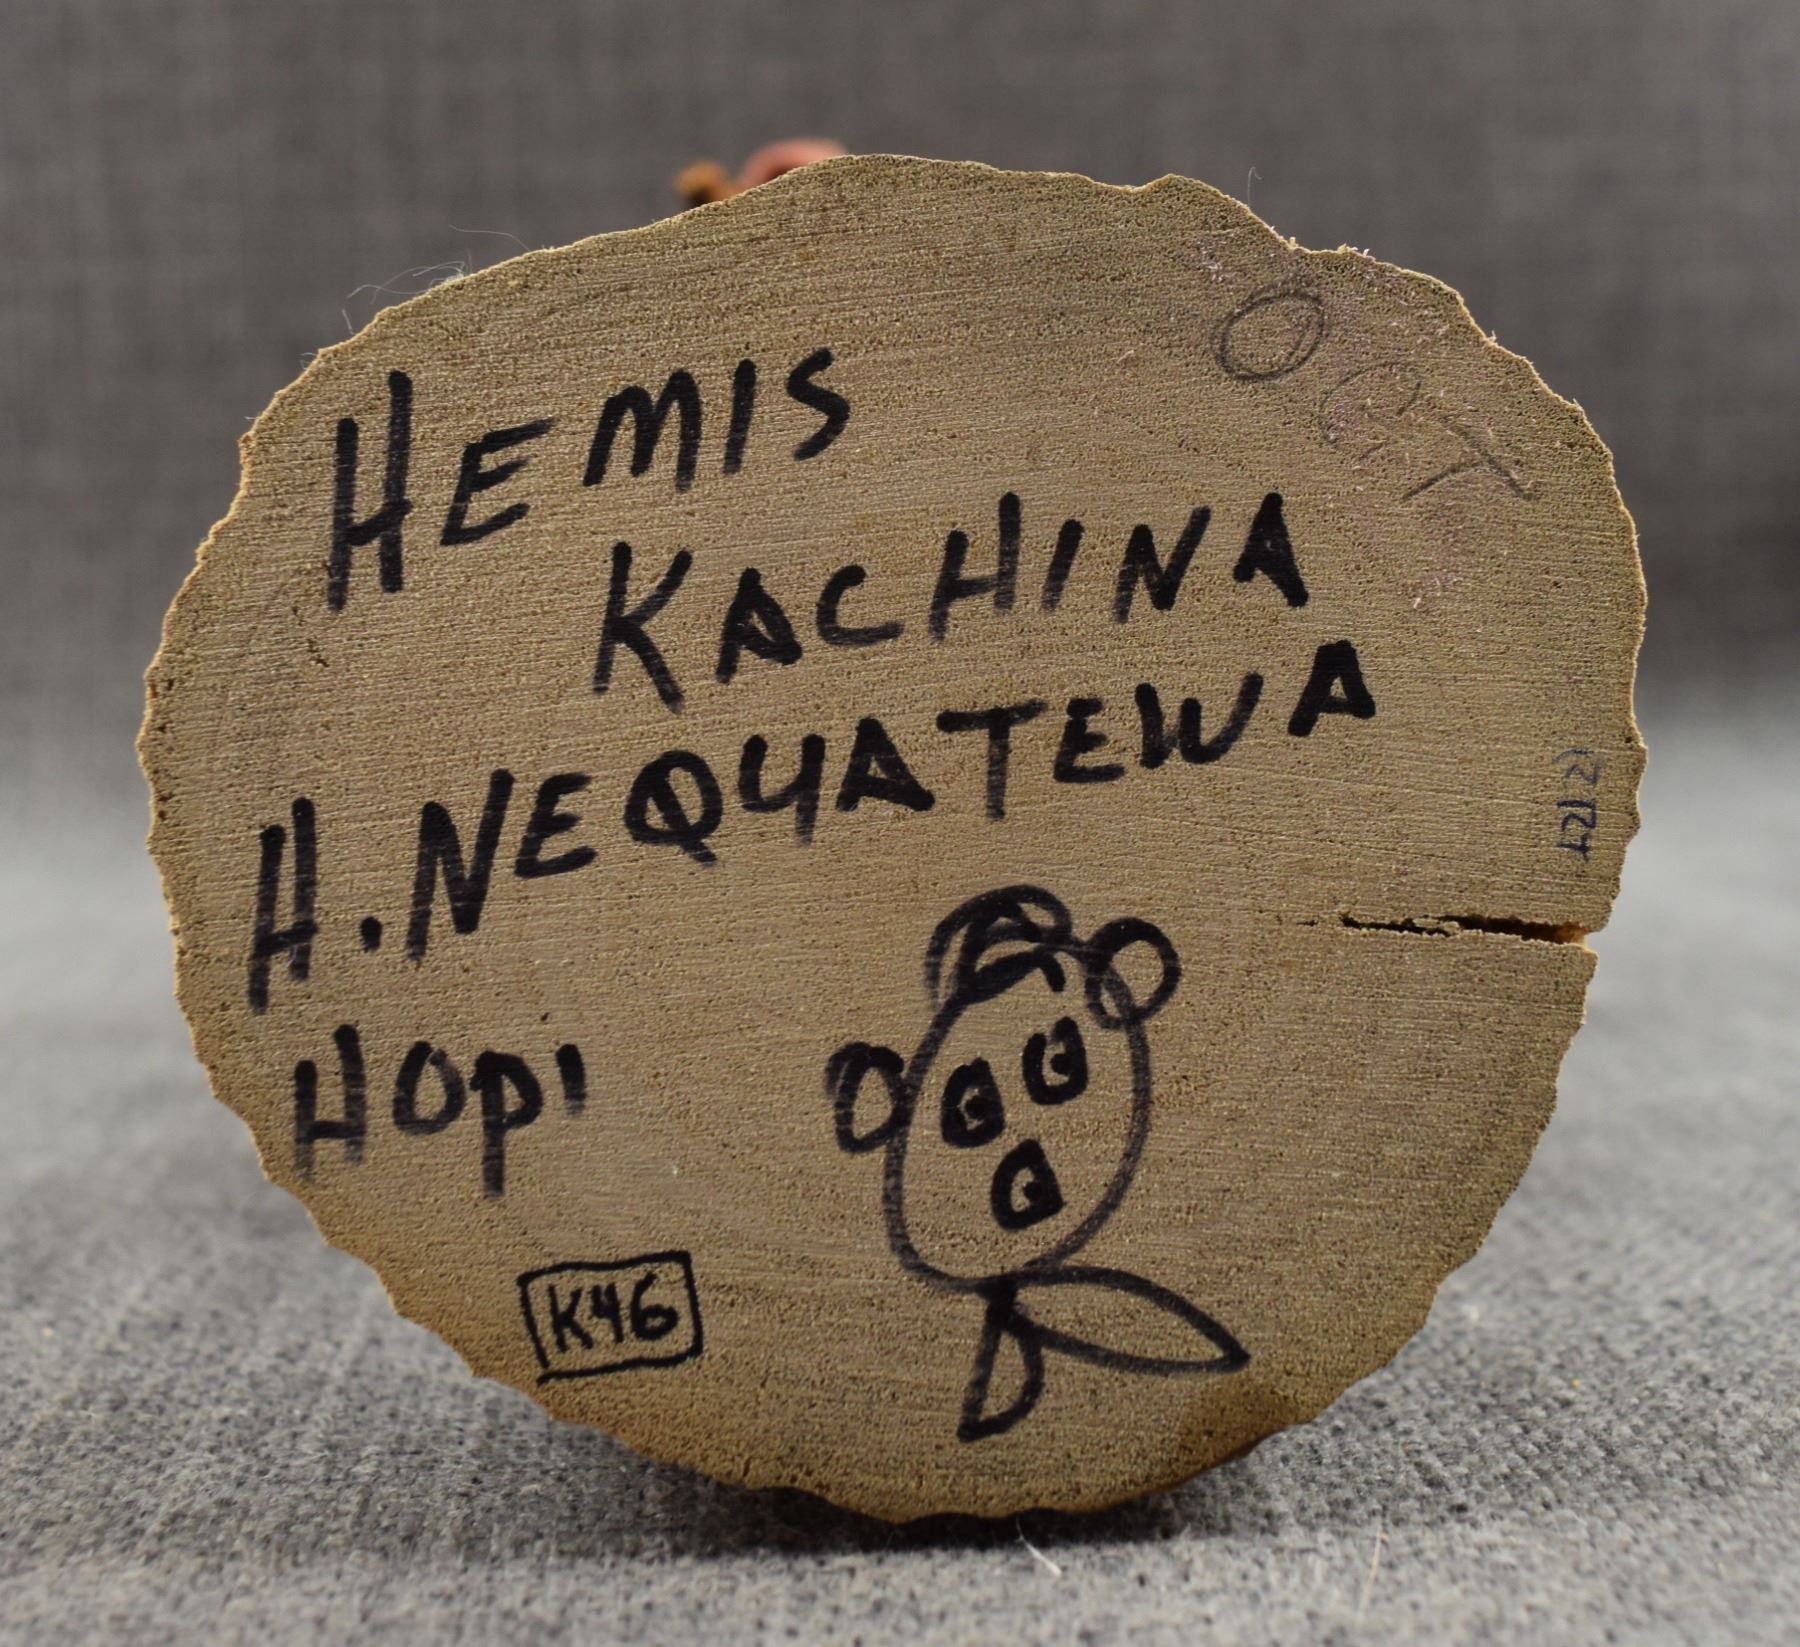 HEMIS
KACHINA
H. NEQUATEWA
HOPI
K46